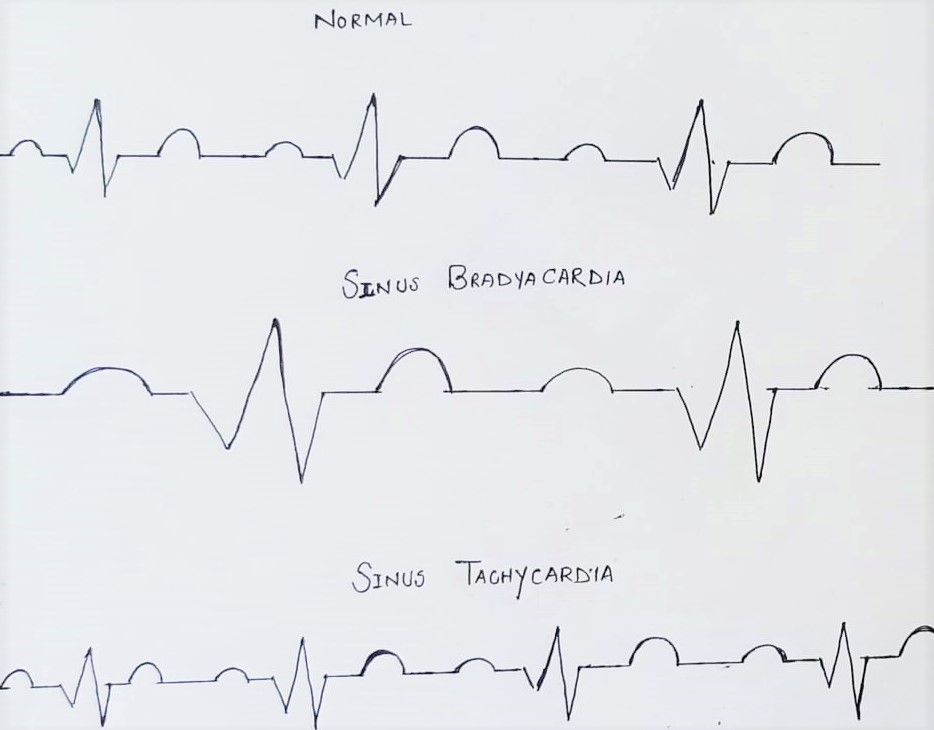 NORMAL
SINUS BRADYACARDIA
SINUS TACHYCARDIA